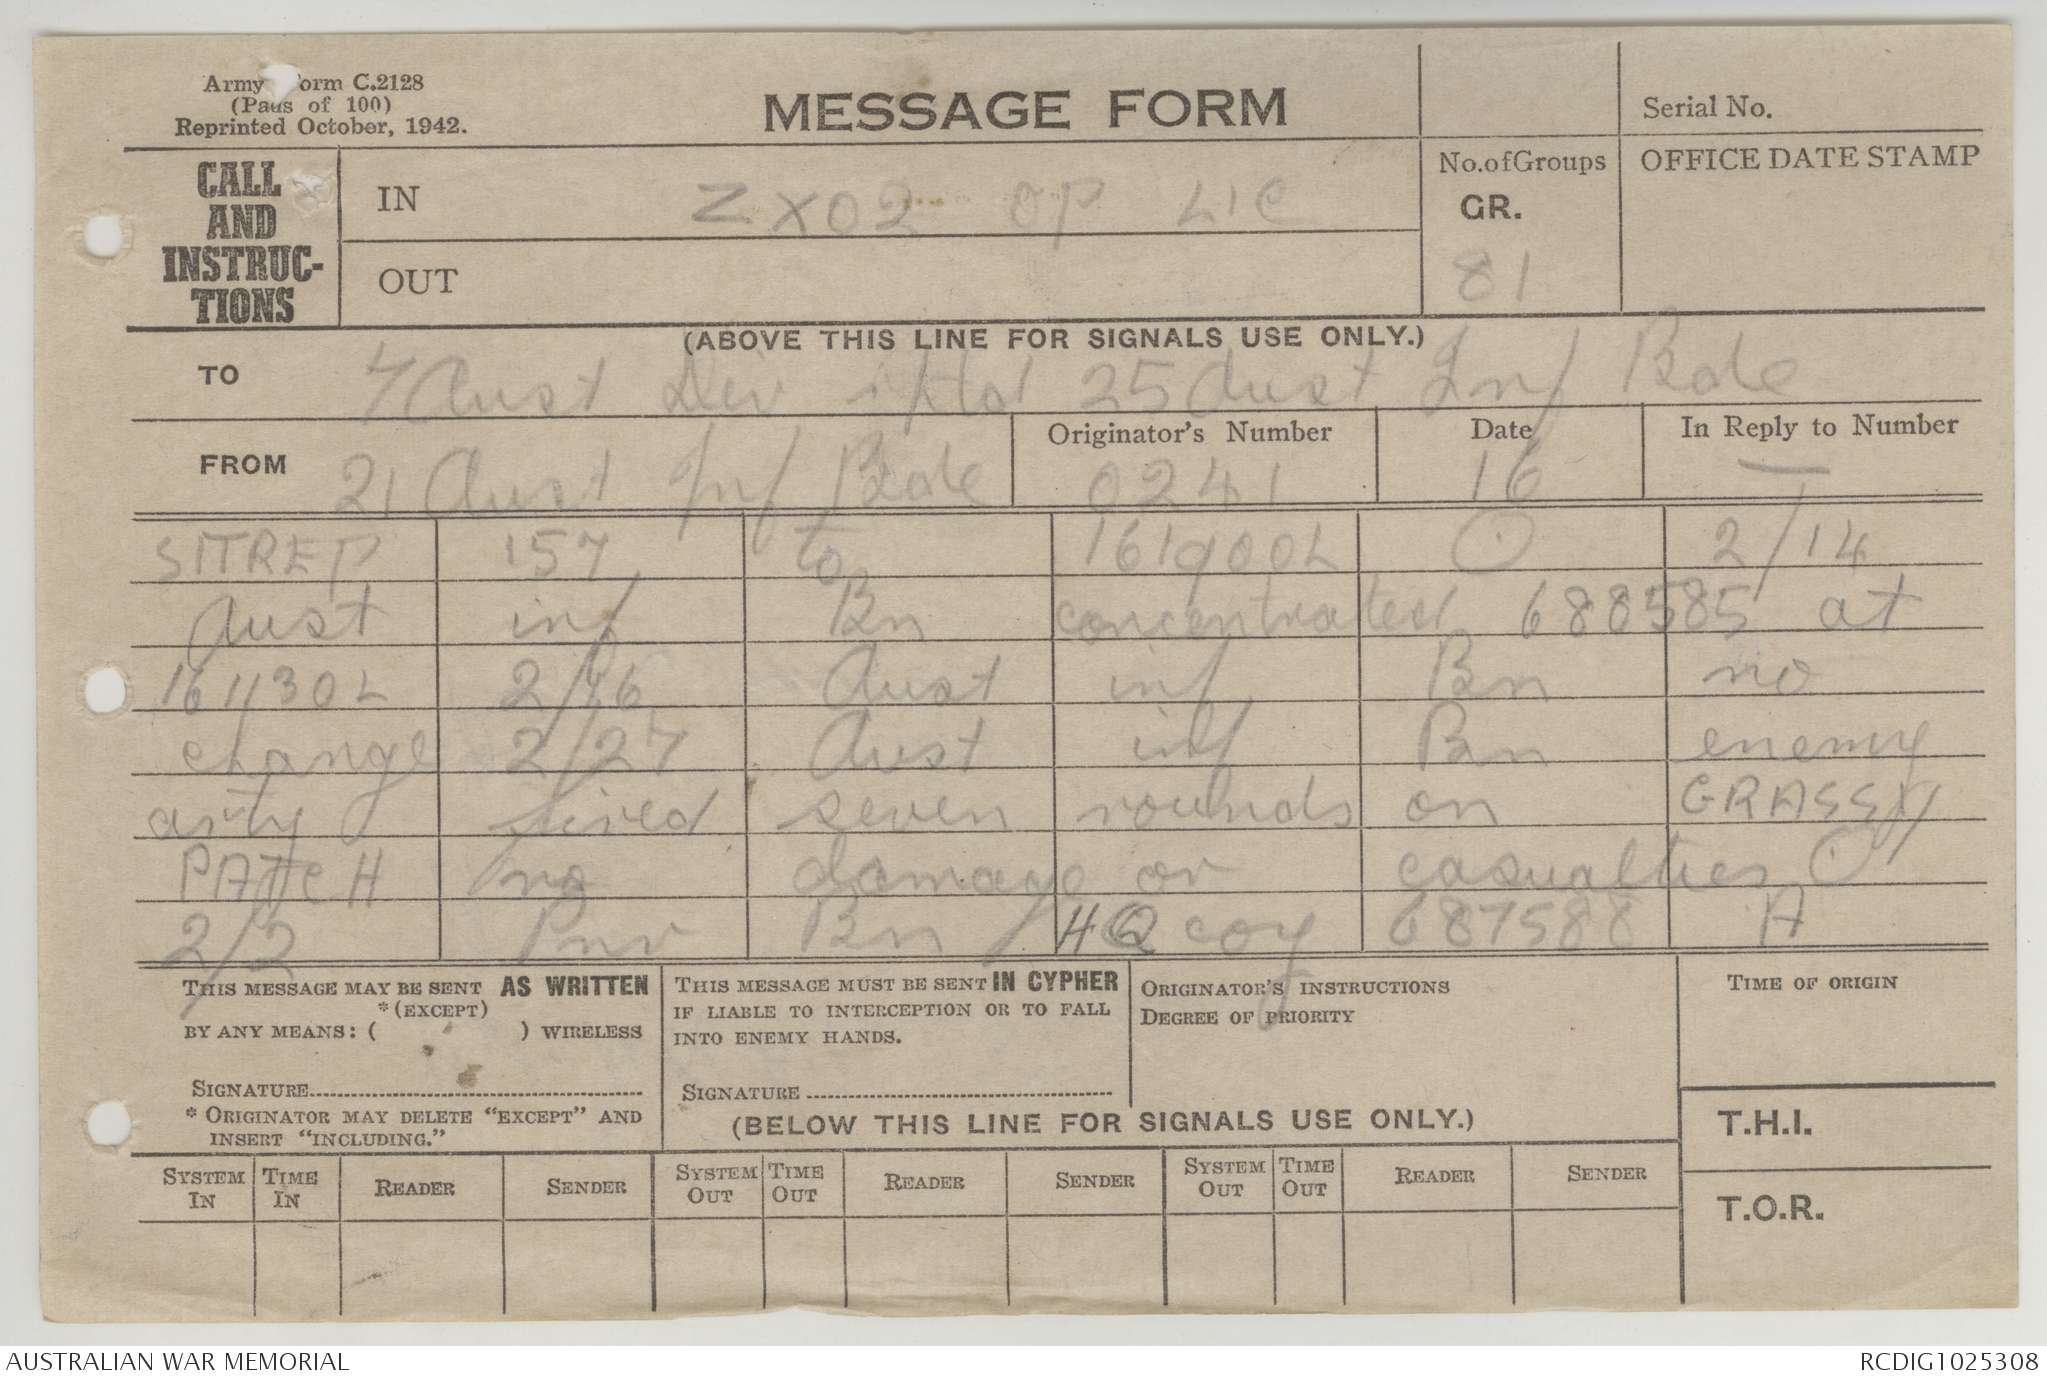 Army Form C.2128
(Pads of 100)
Reprinted October, 1942.
MESSAGE FORM
Serial No.
CALL AND INSTRUC-TIONS
IN ZX02 OP LIC
OUT
No. of Groups GR. 81
OFFICE DATE STAMP
(ABOVE THIS LINE FOR SIGNALS USE ONLY.)
TO 7 Aust Div rptd 25 Aust Inf Bde
FROM 21 Aust Inf Bde
Originator's Number 0241
Date 16
In Reply to Number —
SITREP 157 to 161900L 2/14
Aust inf Bn concentrated 688585 at
161130L 2/16 Aust inf Bn no
change 2/27 Aust inf Bn enemy
arty fired seven rounds on GRASSY
PATCH no damage or casualties
2/2 Pnr Bn HQ coy 687588 A
THIS MESSAGE MAY BE SENT AS WRITTEN
*(EXCEPT)
BY ANY MEANS: ( ) WIRELESS
SIGNATURE
* ORIGINATOR MAY DELETE "EXCEPT" AND
INSERT "INCLUDING."
THIS MESSAGE MUST BE SENT IN CYPHER
IF LIABLE TO INTERCEPTION OR TO FALL
INTO ENEMY HANDS.
SIGNATURE
ORIGINATOR'S INSTRUCTIONS
DEGREE OF PRIORITY
TIME OF ORIGIN
(BELOW THIS LINE FOR SIGNALS USE ONLY.)
T.H.I.
T.O.R.
SYSTEM IN TIME IN READER SENDER SYSTEM OUT TIME OUT READER SENDER SYSTEM OUT TIME OUT READER SENDER
AUSTRALIAN WAR MEMORIAL
RCDIG1025308